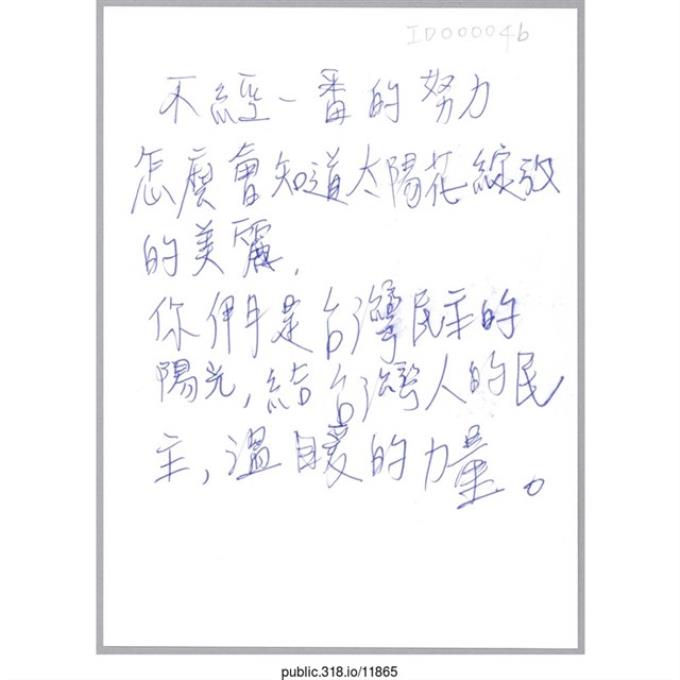 ID00004b
不經一番的努力
怎麼會知道太陽花綻放
的美麗,
你們是台灣民主的
陽光,結台灣人的民
主,溫暖的力量。
public.318.io/11865